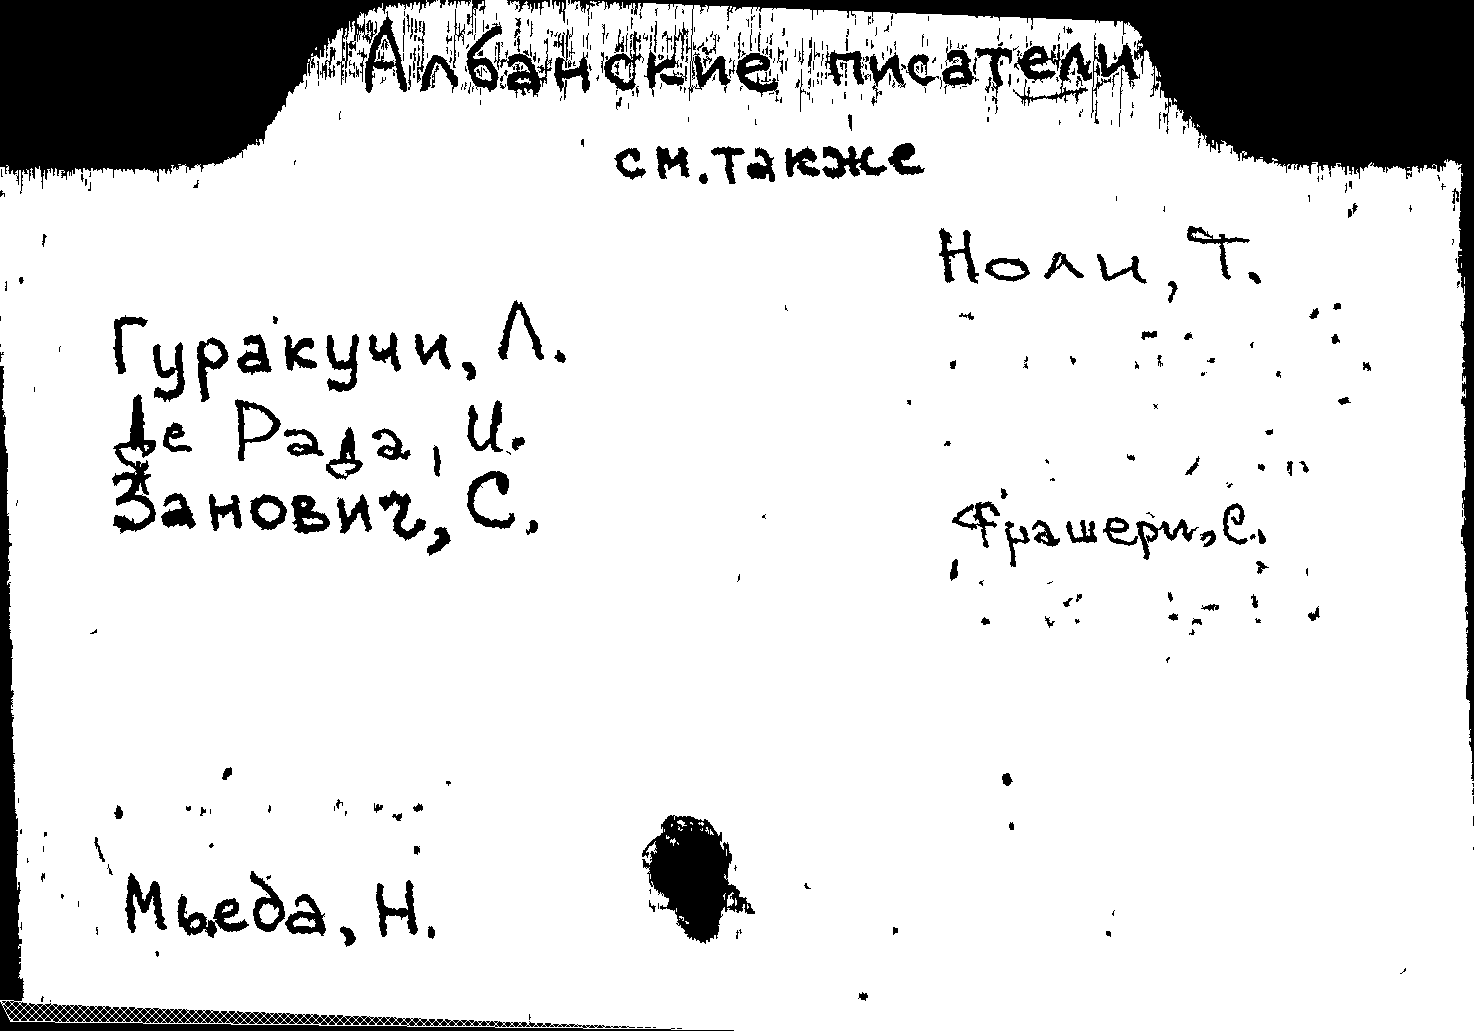 Албанские писатели
см. также
Ноли, Т.
Гуракучи, Л.
Де Рада, И.
Занович, С.
Фрашери, С.
Мьеда, Н.